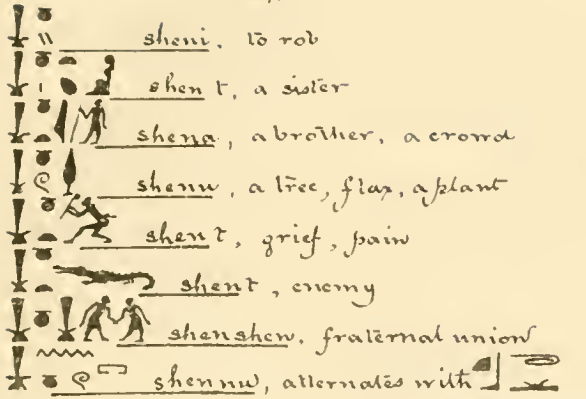 sheni, to rob
shent, a sister
shena, a brother, a crowd
shenu, a tree, flax, a plant
shent, grief, pain
shent, enemy
shenshen, fraternal union
shennu, alternates with